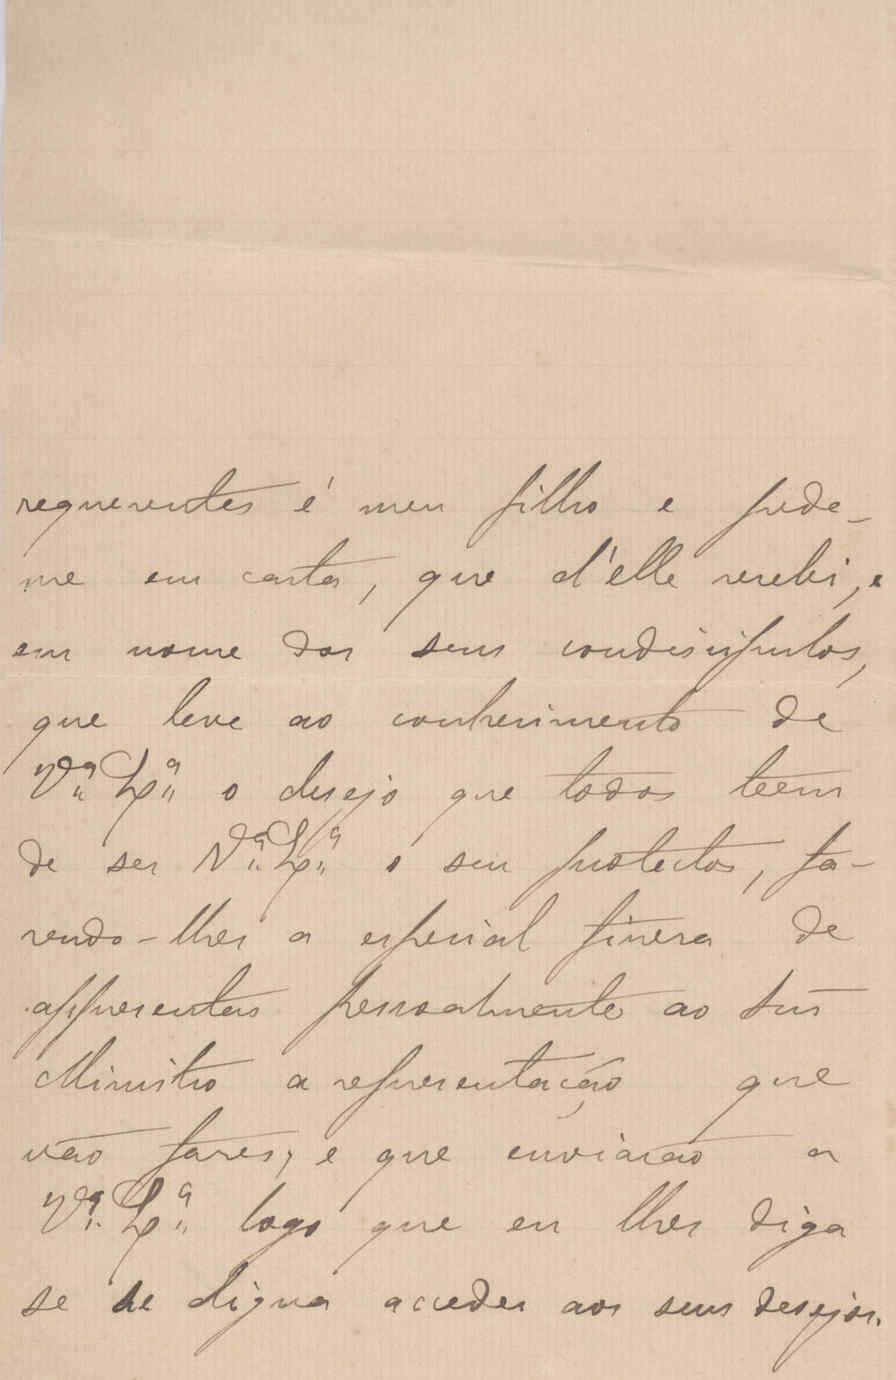 requerentes é meu filho e pede-
me em carta, que d'elle recebi, e
em nome dos seus condiscipulos,
que leve ao conhecimento de
V.ª Ex.ª o desejo que todos teem
de ser V.ª Ex.ª o seu protector, fa-
zendo-lhes a especial fineza de
appresentar pessoalmente ao Snr
Ministro a representação que
vão fazer, e que enviarão a
V.ª Ex.ª logo que eu lhes diga
se se digna acceder aos seus desejos.